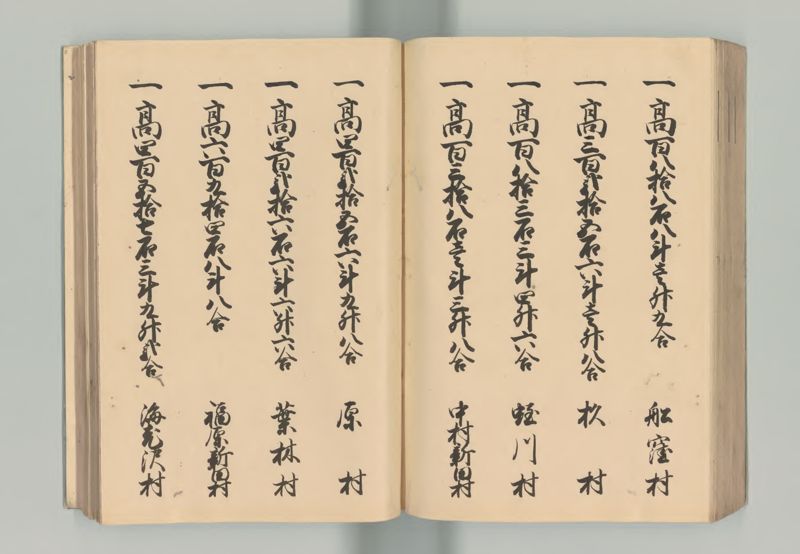 一高百八拾八石八斗壱升九合 船窪村
一高三百弐拾五石六斗壱升八合 杦村
一高百八拾三石三斗四升六合 蛭川村
一高百三拾八石壱斗三升八合 中村新田村
一高四百弐拾五石六斗九升八合 原村
一高四百弐拾六石六斗六升六合 葉林村
一高六百九拾四石八斗八合 福原新田村
一高四百五拾七石三斗九升弐合 海老沢村